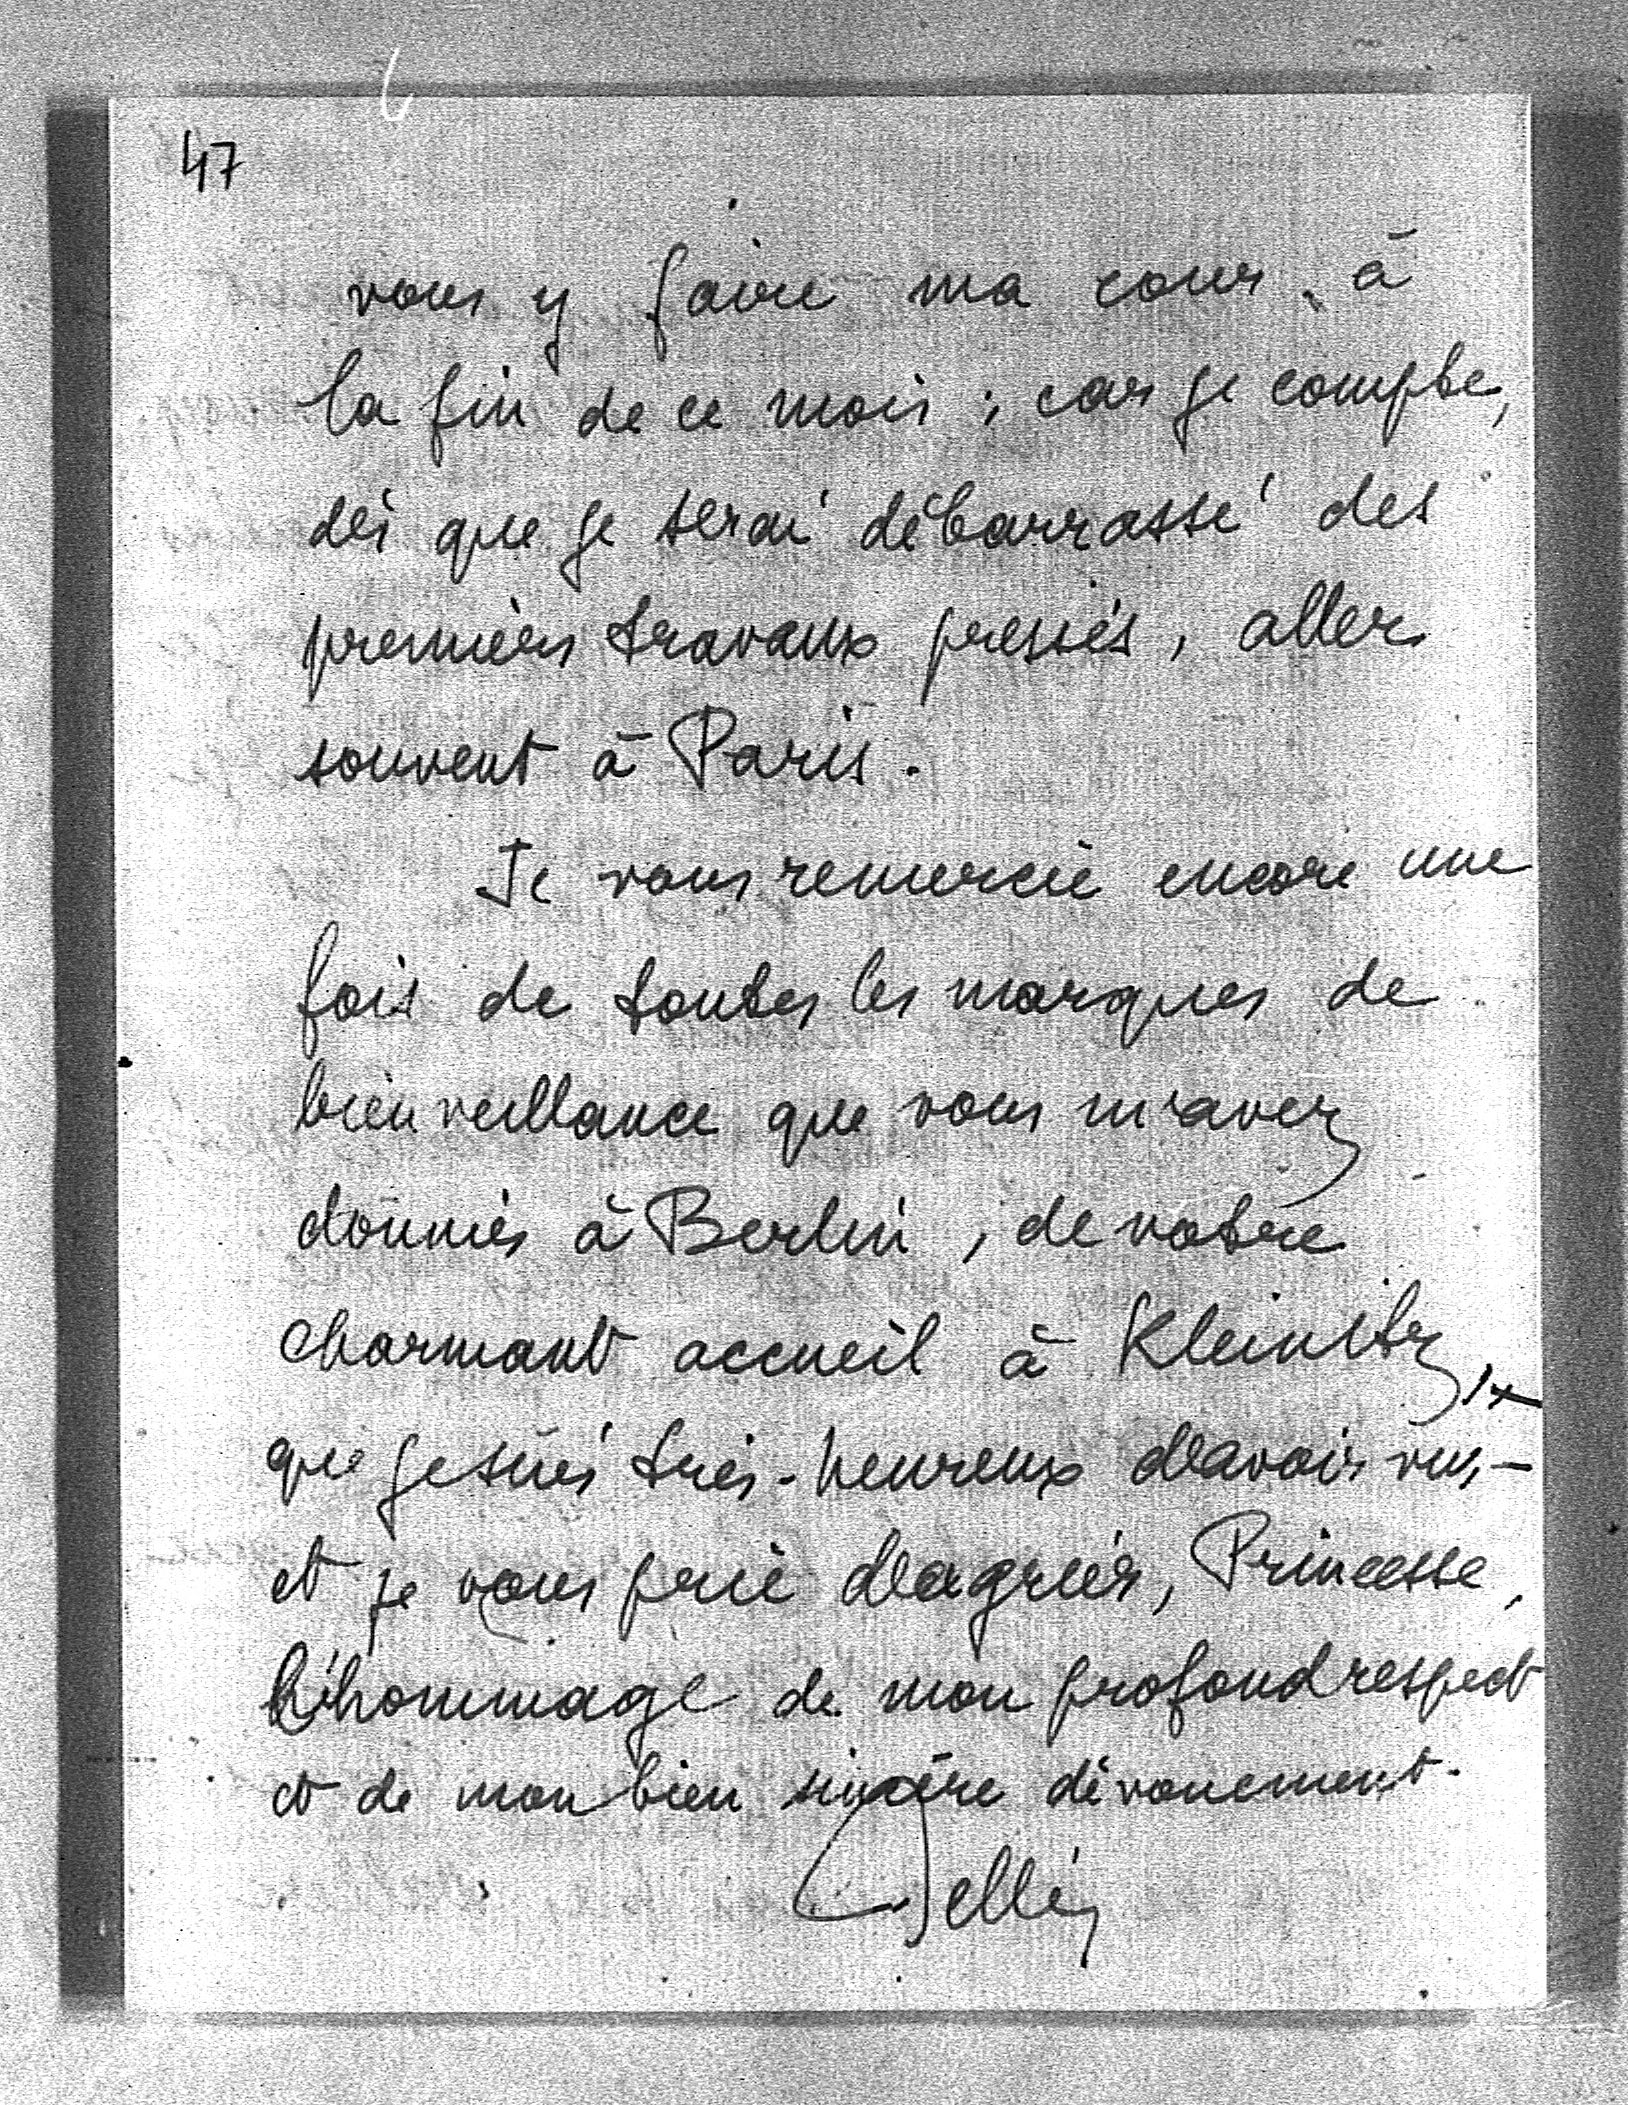 47
vous y faire ma cour, à
la fin de ce mois ; car je compte,
dès que je serai débarrassé des
premiers travaux pressés, aller
souvent à Paris.
Je vous remercie encore une
fois de toutes les marques de
bienveillance que vous m'avez
données à Berlin, de votre
charmant accueil à Kleinitz,
que je suis très-heureux d'avoir vu, –
et je vous prie d'agréer, Princesse,
l'hommage de mon profond respect
et de mon bien sincère dévouement.